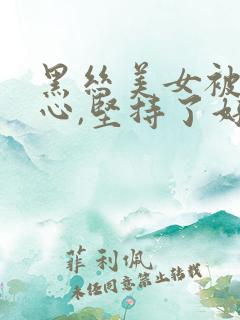 黑丝美女被
心,坚持了好
菲利佩
未经同意禁止转载